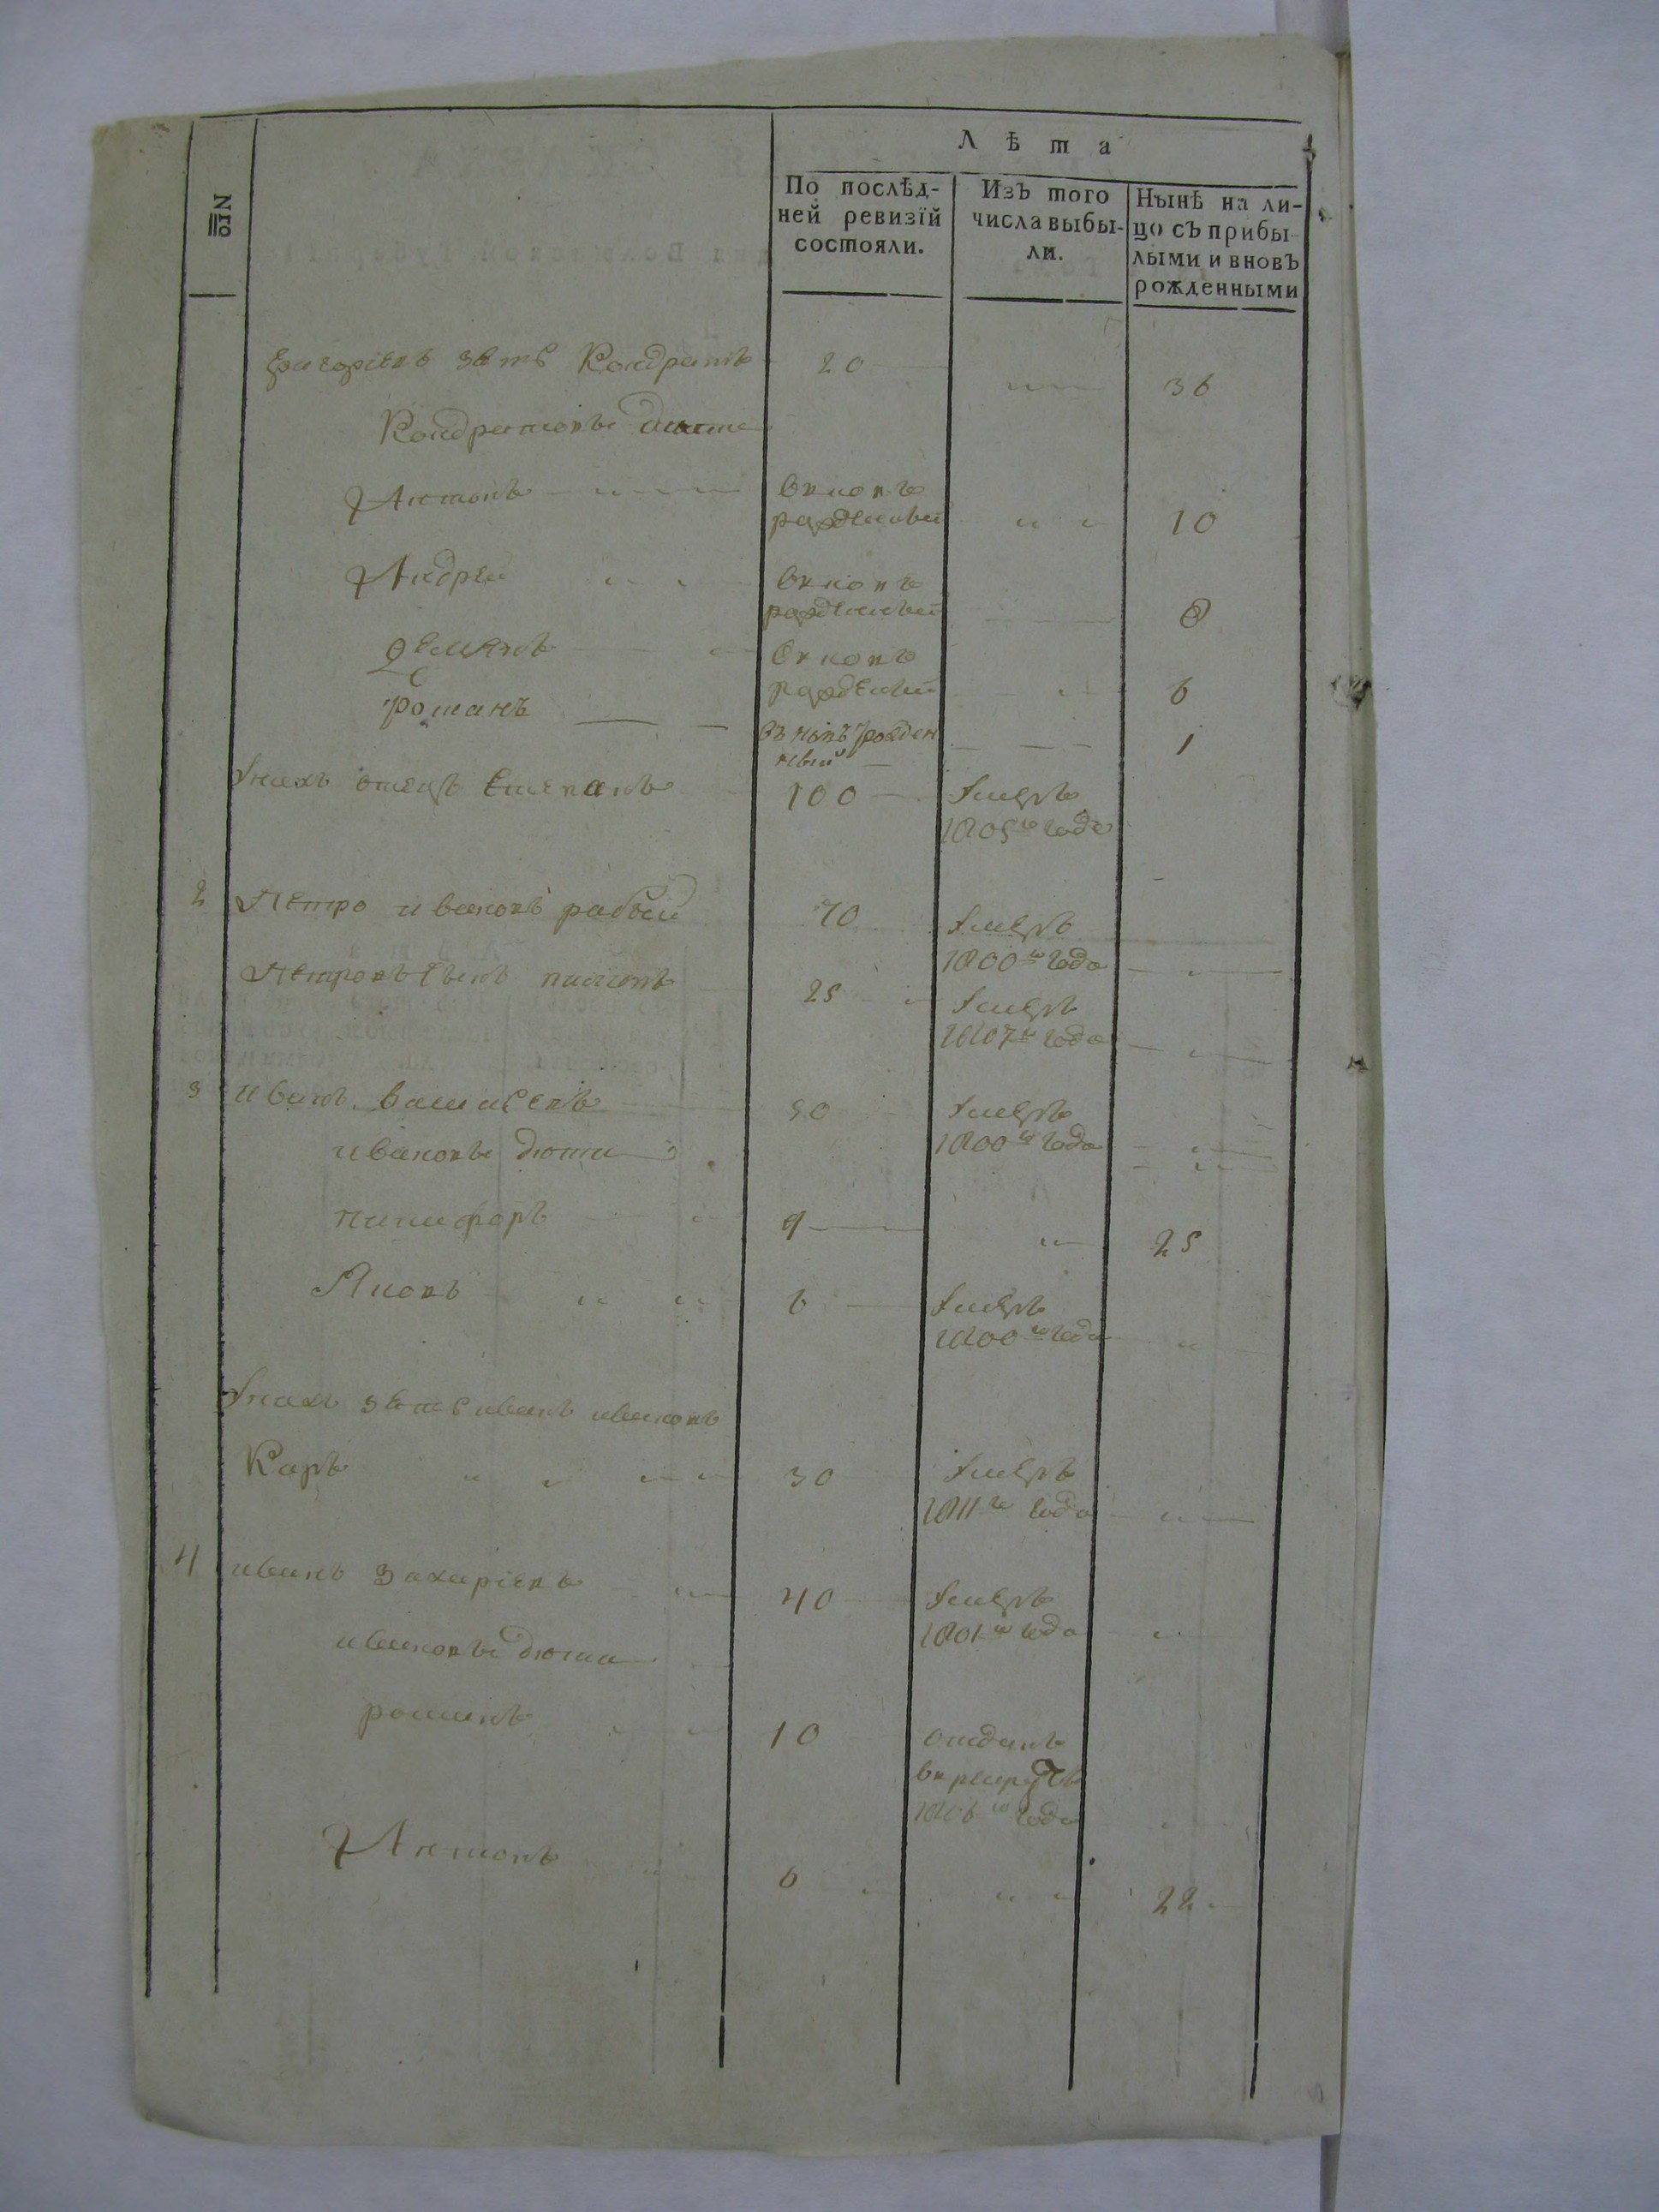 Лѣта
No
По послѣд-
ней ревизїй
состояли.
Изъ того
числа выбы-
ли.
Нынѣ на ли-
цо съ прибы-
лыми и вновъ
рожденными
зять Кондратъ 20 36
Кондратовы
Антонъ вновъ
рожденный 10
Андрей вновъ
рожденный 8
Демянъ вновъ
рожденный 6
Романъ въ новъ рожден
ный 1
У нихъ отецъ Степанъ 100 умеръ
1805го года
2 Петро Ивановъ 70 умеръ
1800го года
Петровъ сынъ 25 умеръ
1807го года
3 Иванъ 50 умеръ
1800го года
Ивановы дѣти
Никифоръ 9 25
6 умеръ
1800го года
У нихъ зять Иванъ Ивановъ
Карѣ 30 умеръ
1811го года
4 Иванъ Захаріевъ 40 умеръ
1801го года
Ивановы дѣти
Романъ 10 отданъ
в рекруты
1806го года
Антонъ 6 22